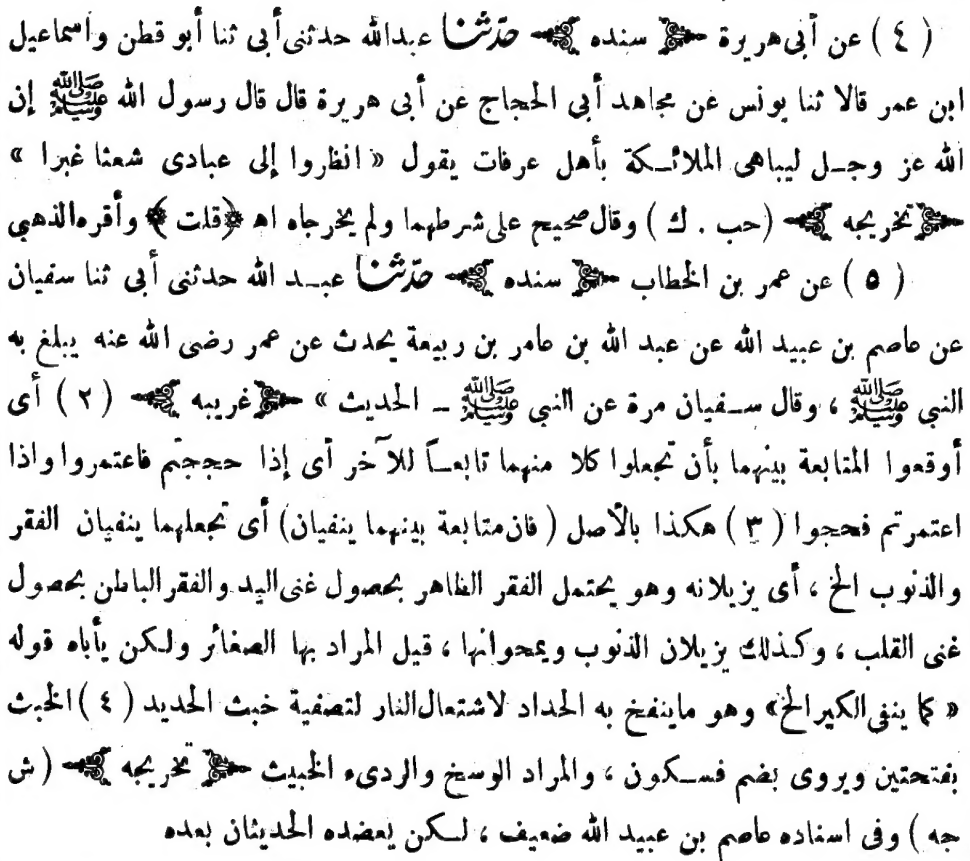 ( ٤ ) عن أبى هريرة ﴿ سنده ﴾ حدّثنا عبدالله حدثنى أبى ثنا أبو قطن واسماعيل
ابن عمر قالا ثنا يونس عن مجاهد أبى الحجاج عن أبى هريرة قال قال رسول الله ﷺ إن
الله عز وجل ليباهى الملائكة بأهل عرفات يقول « انظروا إلى عبادى شعثا غبرا »
﴿ تخريجه ﴾ (حب . ك ) وقال صحيح على شرطهما ولم يخرجاه اه ﴿قلت ﴾ وأقره الذهبى
( ٥ ) عن عمر بن الخطاب ﴿ سنده ﴾ حدّثنا عبد الله حدثنى أبى ثنا سفيان
عن عاصم بن عبيد الله عن عبد الله بن عامر بن ربيعة يحدث عن عمر رضى الله عنه يبلغ به
النبى ﷺ ، وقال سفيان مرة عن النبى ﷺ ـ الحديث » ﴿غريبه ﴾ ( ٢ ) أى
أوقعوا المتابعة بينهما بأن تجعلوا كلا منهما تابعاً للآخر أى إذا حججتم فاعتمروا واذا
اعتمرتم فحجوا ( ٣ ) هكذا بالأصل ( فان متابعة بينهما ينفيان) أى تجعلهما ينفيان الفقر
والذنوب الخ ، أى يزيلانه وهو يحتمل الفقر الظاهر بحصول غنى اليد والفقر الباطن بحصول
غنى القلب ، وكذلك يزيلان الذنوب ويمحوانها ، قيل المراد بها الصغائر ولكن يأباه قوله
« كما ينفى الكير الخ» وهو ماينفخ به الحداد لاشتعال النار لتصفية خبث الحديد ( ٤ ) الخبث
بفتحتين ويروى بضم فسكون ، والمراد الوسخ والردىء الخبيث ﴿ تخريجه ﴾ ( ش
جه ) وفى اسناده عاصم بن عبيد الله ضعيف ، لكن يعضده الحديثان بعده